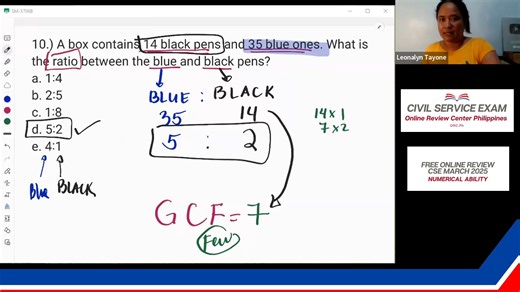 10.) A box contains 14 black pens and 35 blue ones. What is
the ratio between the blue and black pens?
a. 1:4
b. 2:5
c. 1:8
d. 5:2
e. 4:1
BLUE : BLACK
35 14
5 : 2
14 x 1
7 x 2
Blue BLACK
GCF = 7
Few
Leonalyn Tayone
CIVIL SERVICE EXAM
Online Review Center Philippines
FREE ONLINE REVIEW
CSE MARCH 2025
NUMERICAL ABILITY